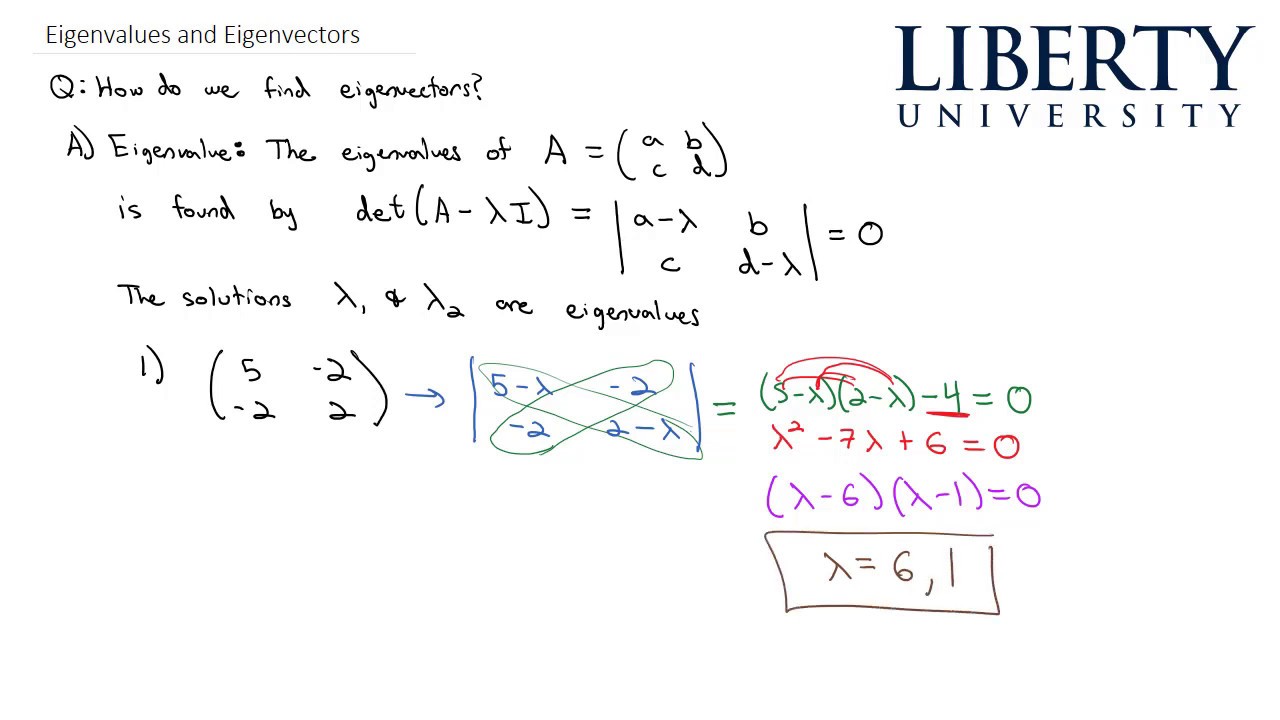 Eigenvalues and Eigenvectors
LIBERTY
UNIVERSITY
Q: How do we find eigenvectors?
A) Eigenvalue: The eigenvalues of A = (a b
c d)
is found by det(A - λI) = |a-λ b
c d-λ| = 0
The solutions λ₁ & λ₂ are eigenvalues
1) (5 -2
-2 2) → |5-λ -2
-2 2-λ| = (5-λ)(2-λ) -4 = 0
λ² - 7λ + 6 = 0
(λ-6)(λ-1) = 0
λ = 6, 1